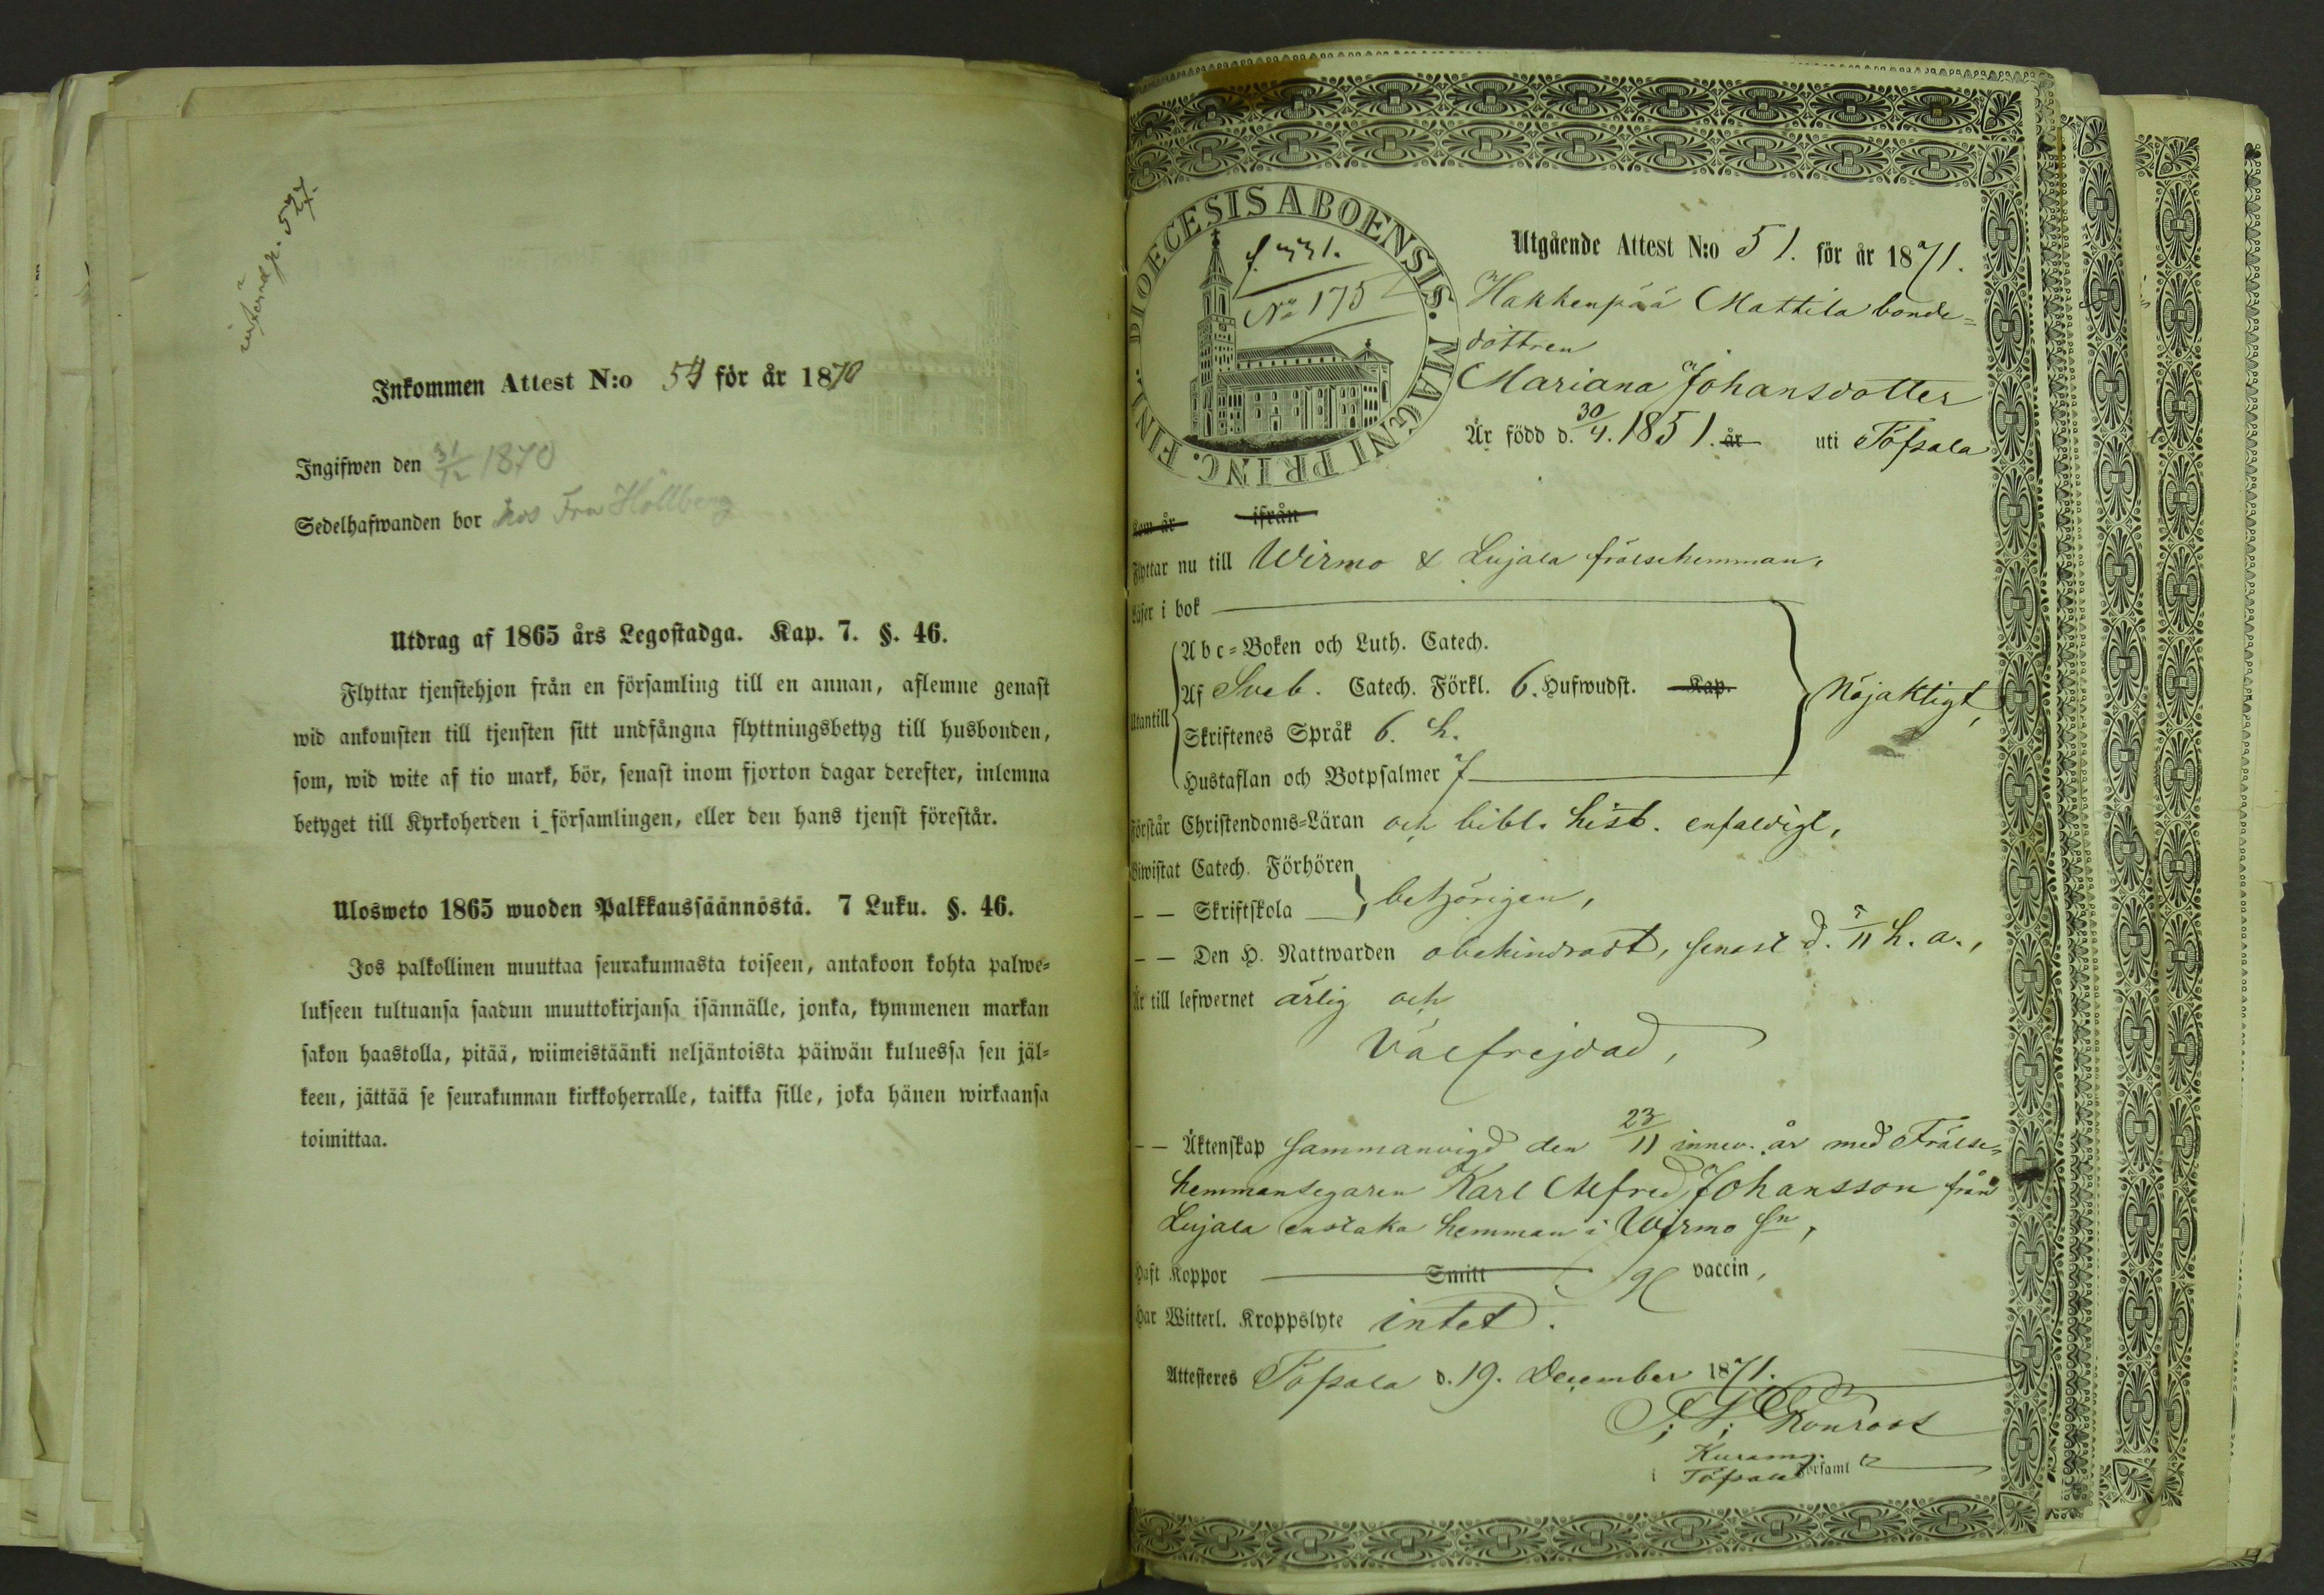 införd p. 527.
Inkommen Attest N:o 54 för år 1870
Ingifwen den 31/12 1870
Sedelhafwanden bor hos Fru Hollberg
Utdrag af 1865 års Legostadga. Kap. 7. §. 46.
Flyttar tjenstehjon från en församling till en annan, aflemne genast
wid ankomsten till tjensten sitt undfångna flyttningsbetyg till husbonden,
som, wid wite af tio mark, bör, senast inom fjorton dagar derefter, inlemna
betyget till Kyrkoherden i församlingen, eller den hans tjenst förestår.
Ulosweto 1865 wuoden Palkkaussäännöstä. 7 Luku. §. 46.
Jos palkollinen muuttaa seurakunnasta toiseen, antakoon kohta palwe=
lukseen tultuansa saadun muuttokirjansa isännälle, jonka, kymmenen markan
sakon haastolla, pitää, wiimeistäänki neljäntoista päiwän kuluessa sen jäl=
keen, jättää se seurakunnan kirkkoherralle, taikka sille, joka hänen wirkaansa
toimittaa.
DIOECESIS ABOENSIS. MAGNI PRINC. FINL.
f. 331.
No 175
Utgående Attest N:o 51. för år 1871.
Hakkenpää Mattila bonde=
dottren
Mariana Johansdotter
Är född d. 30/4. 1851. år uti Töfsala
Kom år ifrån
Flyttar nu till Wirmo & Lujala frälsehemman,
Läser i bok
Abc=Boken och Luth. Catech.
Utantill Af Sveb. Catech. Förkl. 6. Hufwudst. Kap. Nöjaktigt,
Skriftenes Språk 6. h.
Hustaflan och Botpsalmer 7
Förstår Christendoms=Läran och bibl. hist. enfaldigt,
Biwistat Catech. Förhören
— — Skriftskola behörigen,
— — Den H. Nattwarden obehindradt, senast d. 5/11 h. a.,
Är till lefwernet ärlig och
Välfrejdad,
— — Äktenskap sammanvigd den 23/11 innev. år med Frälse=
hemmansegaren Karl Alfred Johansson från
Lujala enstaka hemman i Wirmo sn,
Haft Koppor Smitt vaccin,
Har Witterl. Kroppslyte intet.
Attesteres Töfsala d. 19. December 1871.
Konroos
i Töfsala Församl